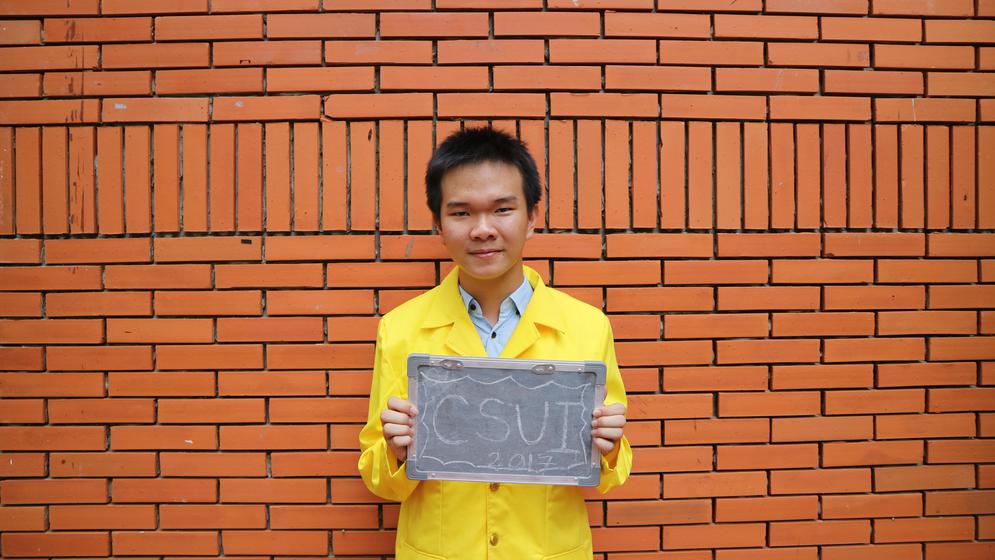 CSUI
2017